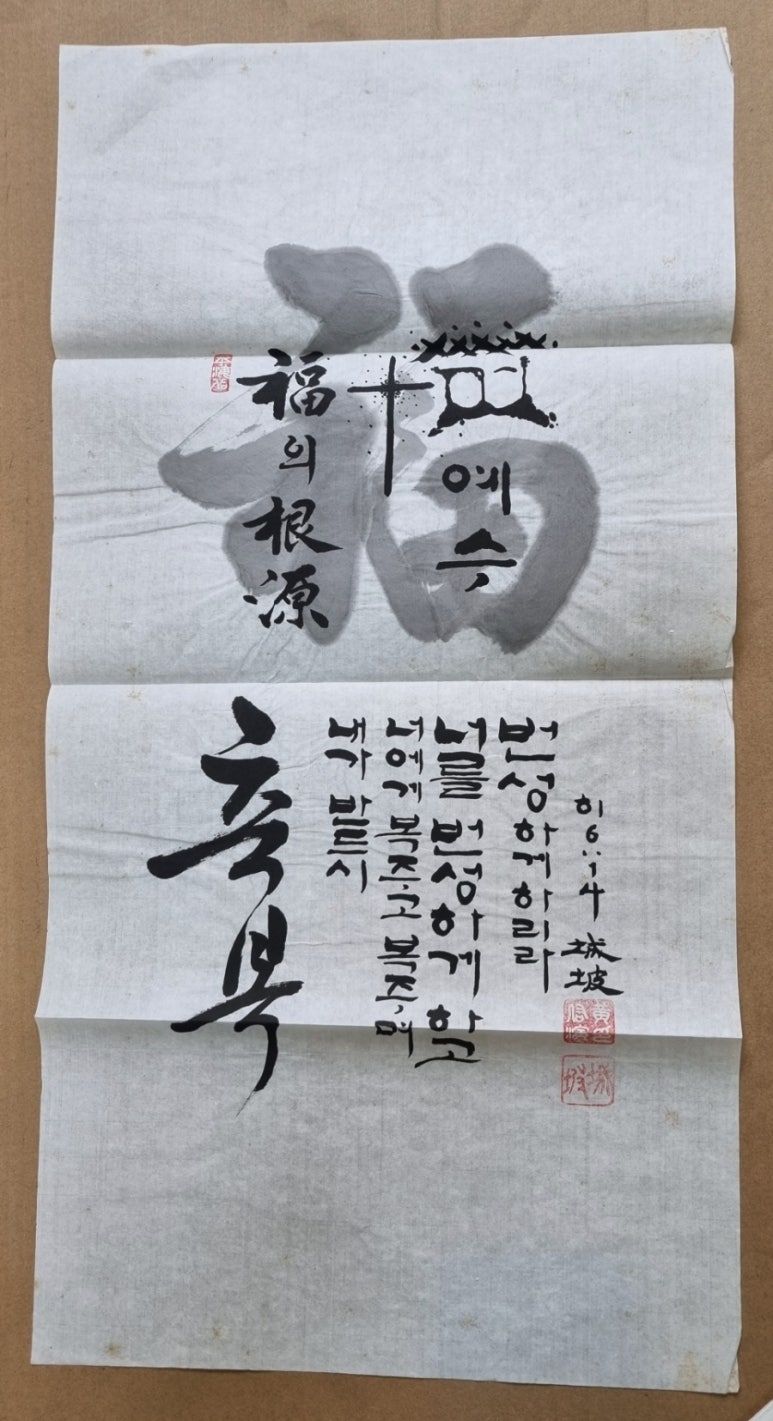 福
福의根源
예수
축복
내가 반드시
너에게 복주고 복주며
너를 번성하게 하고
번성하게하리라
히6:14 城坡
城坡